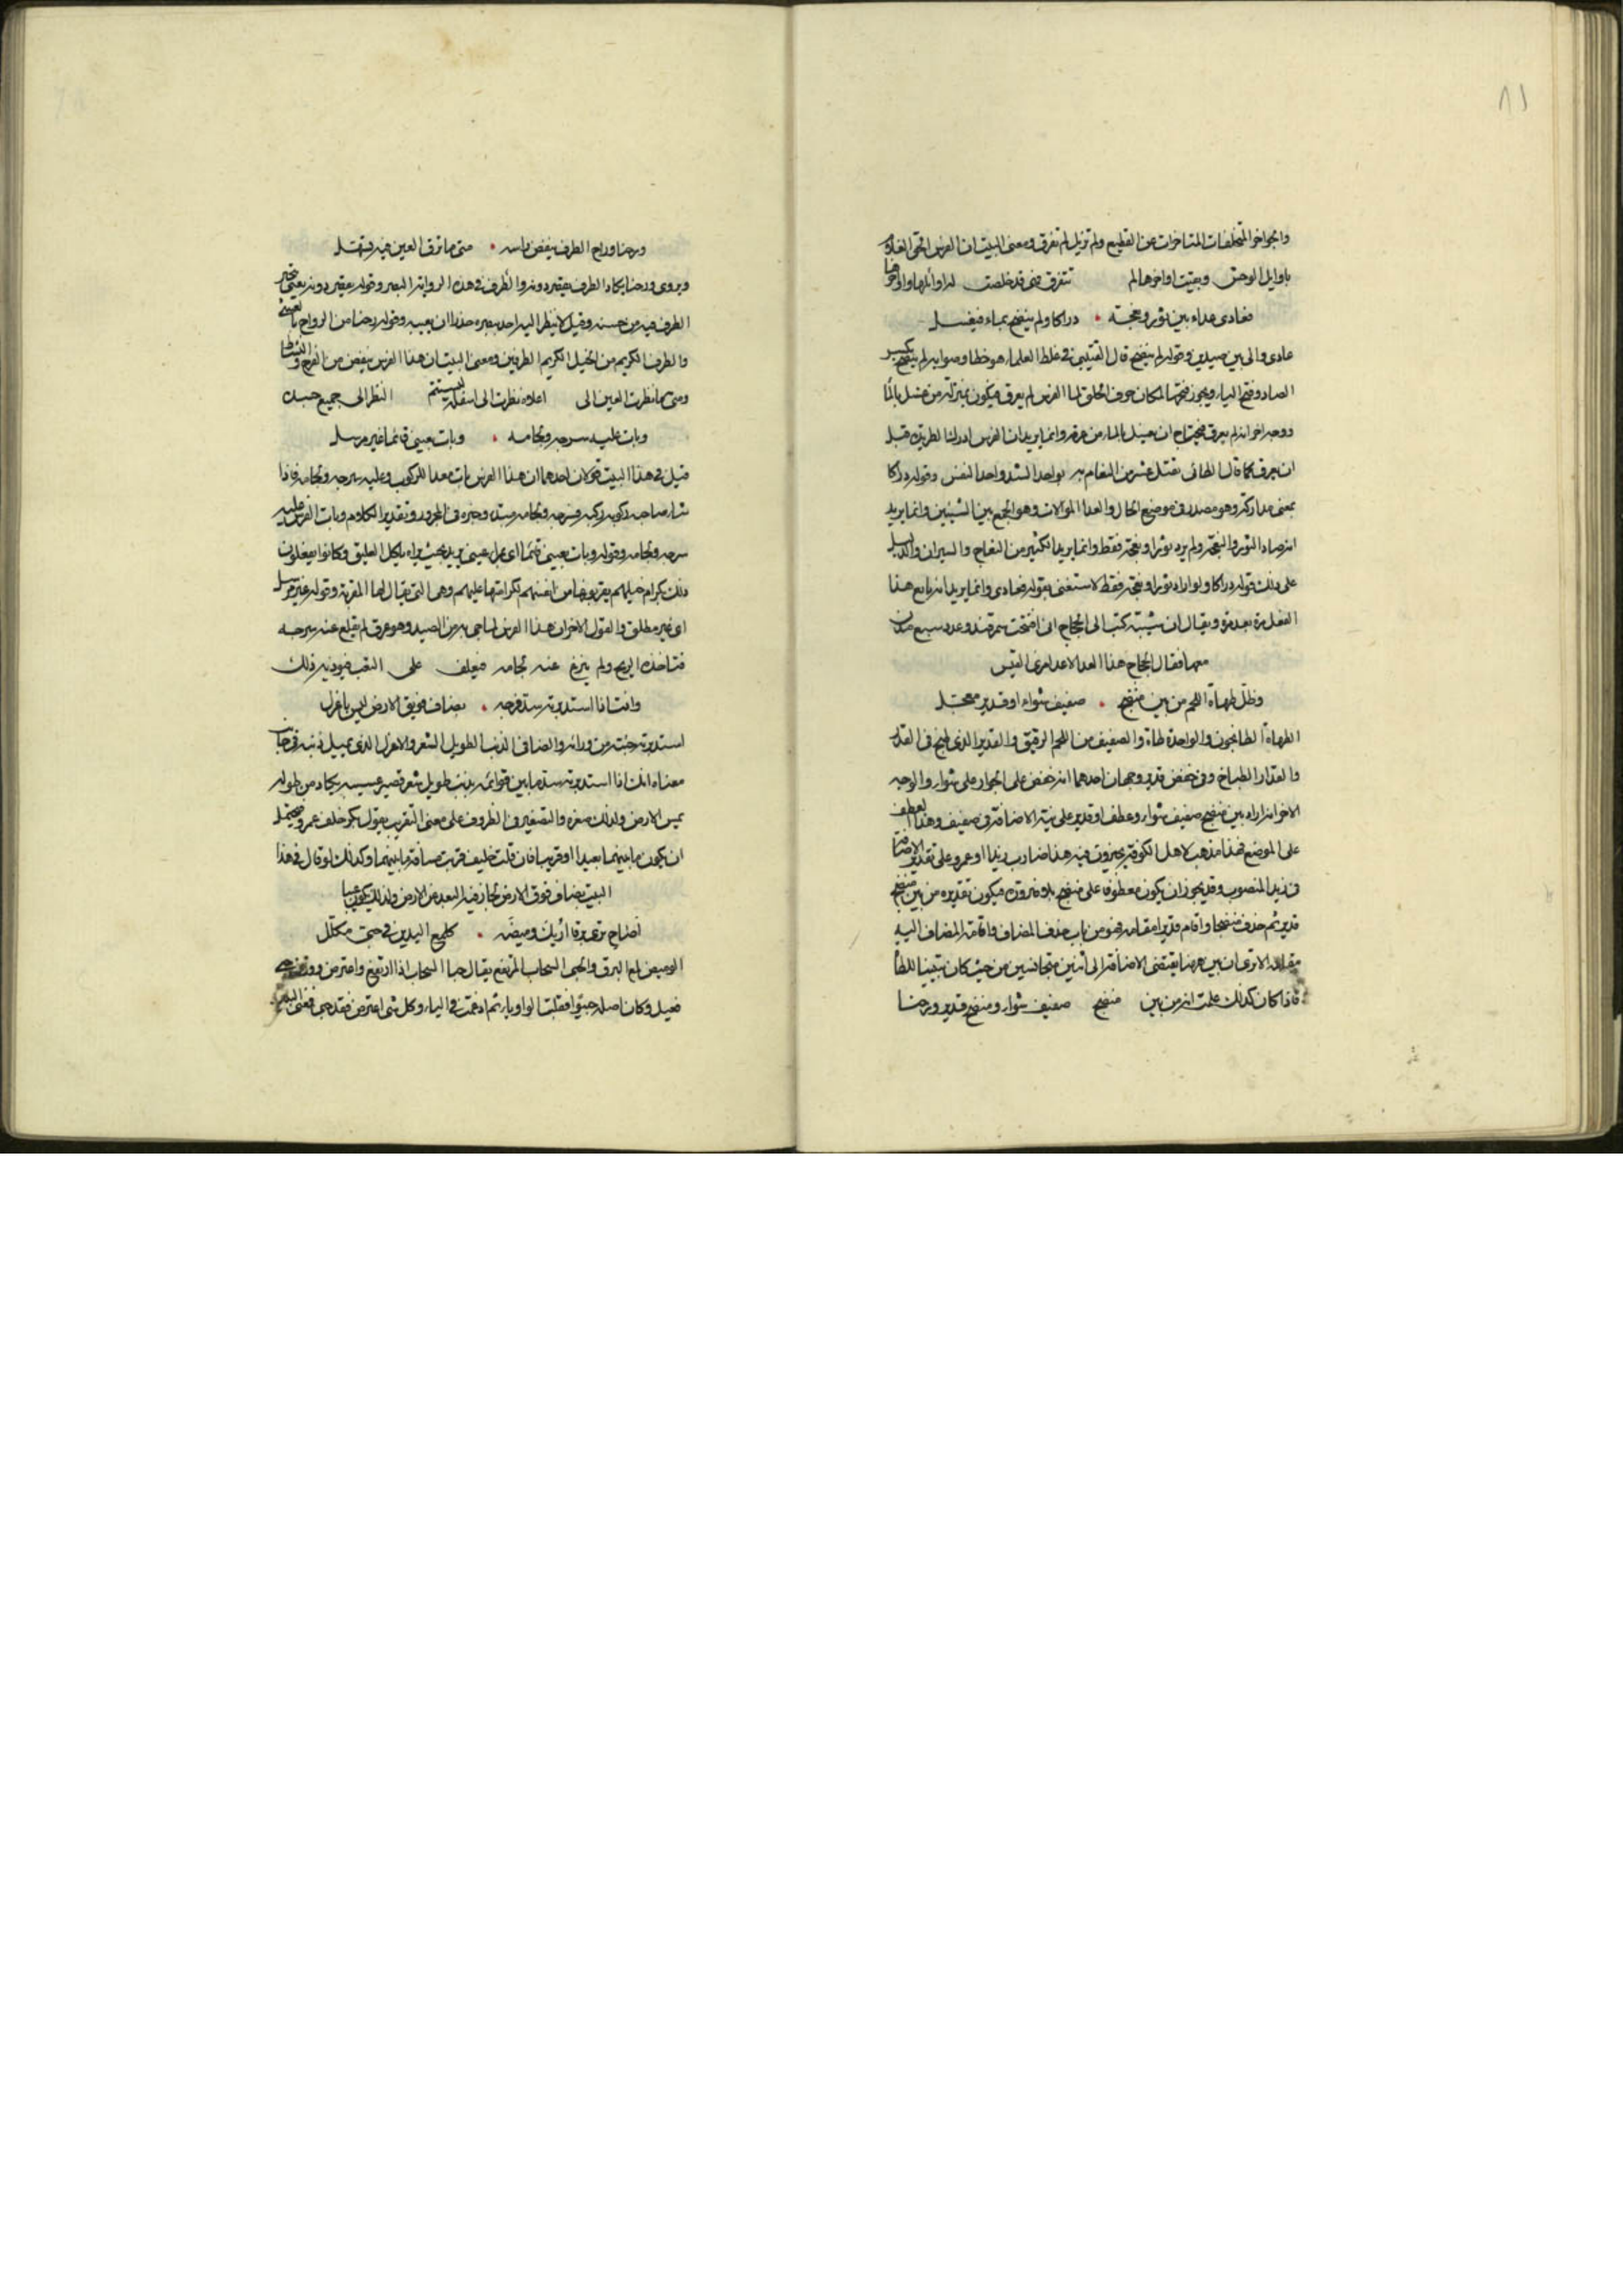 ٨١
والجواحر المتخلفات المتاخرات عن القطيع ولم تزيل لم تفرق ومعنى البيت ان الفرس الحق الغلام
باوايل الوحش وبقيت اواخرها لم تتفرق فهى قد خلصت له اوائلها واواخرها
فعادى عداء بين ثور ونعجة • دراكا ولم ينضح بماء فيغسل
عادى والى بين صيدين وقوله لم ينضح قال القتيبى غلط العلماء هو خطا وصوابه لم ينضح بكسر
الضاد وفتح الياء ويجوز فتحها لمكان حرف الحلق اما الفرس لم يعرق فيكون بمنزلة من غسل بالماء
ووجه اخر انه لم يعرق فيحتاج ان يغسل بالماء من عرقه وانما يريد ان الفرس ادرك الطريدة قبل
ان يعرق كما قال الطائى يقتل عشرا من النعام به بواحد الشد وواحد النفس وقوله دراكا
بمعنى مداركة وهو مصدر فى موضع الحال والعداء الموالاة وهو الجمع بين الشيئين وانما يريد
انه صاد الثور والنعجة ولم يرد ثورا ونعجة فقط وانما يريد الكثير من النعاج والثيران والدليل
على ذلك قوله دراكا ولو اراد ثورا ونعجة فقط لاستغنى بقوله فعادى وانما يريد انه تابع هذا
الفعل مرة بعد مرة ويقال ان كتب الى الحجاج انى افتتحت سمرقند وعدد سبع مدن
معها فقال الحجاج هذا العداء لاعداء امرئ القيس
وظل طهاة اللحم من بين منضج • صفيف شواء او قدير معجل
الطهاة الطباخون والواحدة طاه والصفيف من اللحم الرقيق والقدير الذى طبخ فى القدر
والقدار الطباخ وفى خفض قدير وجهان احدهما انه خفض على الجوار على شواء والوجه
الاخر انه اراد بين منضج صفيف شواء وعطف او قدير على نية الاضافة فى صفيف وهذا العطف
على الموضع فهذا مذهب لاهل الكوفة يجيزون فيه هذا ضارب زيدا او عمرو على تقدير الاضافة
فى زيد المنصوب وقد يجوز ان يكون معطوفا على منضج بلا ضرورة فيكون تقديره من بين منضج
قدير ثم حذف منضجا واقام قديرا مقامه فهو من باب حذف المضاف واقامة المضاف اليه
مقامه الا ترى ان بين هنا يقتضى الاضافة الى اثنين متجانسين من حيث كان تبيينا للطهاة
فاذا كان كذلك علمت انه من بين منضج صفيف شواء ومنضج قدير ورحنا
ورحنا وراح الطرف ينفض راسه • متى ما ترق العين فيه تسهل
ويروى ورحنا يكاد الطرف يقصر دونه والطرف فى هذه الرواية البصر وقوله يقصر دونه يعنى تحير
الطرف فيه من حسنه وقيل لا ينظر اليه احد ببصره حذرا ان يعيبه وقوله رحنا من الرواح بالعشى
والطرف الكريم من الخيل الكريم الطرفين ومعنى البيت ان هذا الفرس ينفض من الفرح والنشاط
ومتى ما نظرت العين الى اعلاه نظرت الى اسفله ليستتم النظر الى جميع جسده
وبات عليه سرجه ولجامه • وبات بعينى قائما غير مرسل
قيل فى هذا البيت قولان احدهما ان هذا الفرس بات معدا للركوب وعليه سرجه ولجامه فاذا
شاء صاحبه ركوبه ركبه وسرجه ولجامه مبتدا وخبره فى المجرور وتقدير الكلام وبات الفرس عليه
سرجه ولجامه وقوله وبات بعينى قائما اى بمراى عينى يريد بحيث يراه ياكل العليق وكانوا يفعلون
ذلك بكرام خيلهم يقربونها من انفسهم لكرامتها عليهم وهى التى يقال لها المقربة وقوله غير مرسل
اى غير مطلق والقول الاخر ان هذا الفرس لما جئ به من الصيد وهو عرق لم يقلع عنه سرجه
فتاخذه الريح ولم ينزع عنه لجامه فيعلف على التعب فيوذيه ذلك
وانت اذا استدبرته سد فرجه • بضاف فويق الارض ليس باعزل
استدبرته جئت من ورائه والضافى الذنب الطويل الشعر والاعزل الذى يميل ذنبه فى جانب
معناه انك اذا استدبرته سد ما بين قوائمه بذنب طويل شعر قصير عسيبه يكاد من طوله
يمس الارض ولذلك صغره والتصغير فى الظروف على معنى التقريب يقول بكر خلف عمرو فيحتمل
ان يكون ما بينهما بعيدا او قريبا فان قلت خليف قربت مسافة ما بينهما وكذلك لو قال فى هذا
البيت بضاف فوق الارض لجاز فيه البعد من الارض ولذلك يكون عيبا
اصاح ترى برقا اريك وميضه • كلمع اليدين فى حبى مكلل
الوميض لمع البرق والحبى السحاب المرتفع يقال حبا السحاب اذا ارتفع واعترض ووزنه
فعيل وكان اصله حبيوا فقلبت الواو ياء ثم ادغمت فى الياء وكل شى اعترض فقد حبى فمعنى البيت